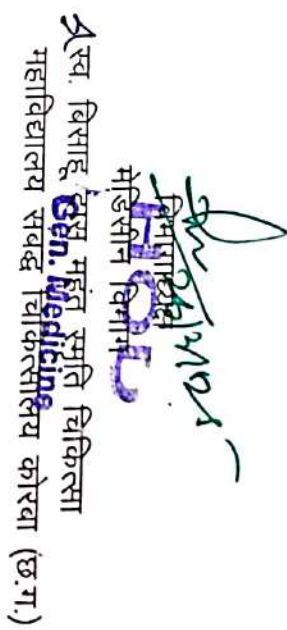 विभागाध्यक्ष
HOD
मेडिसीन विभाग
स्व. बिसाहू दास महंत स्मृति चिकित्सा
Gen. Medicine
महाविद्यालय सबद्ध चिकित्सालय कोरबा (छ.ग.)